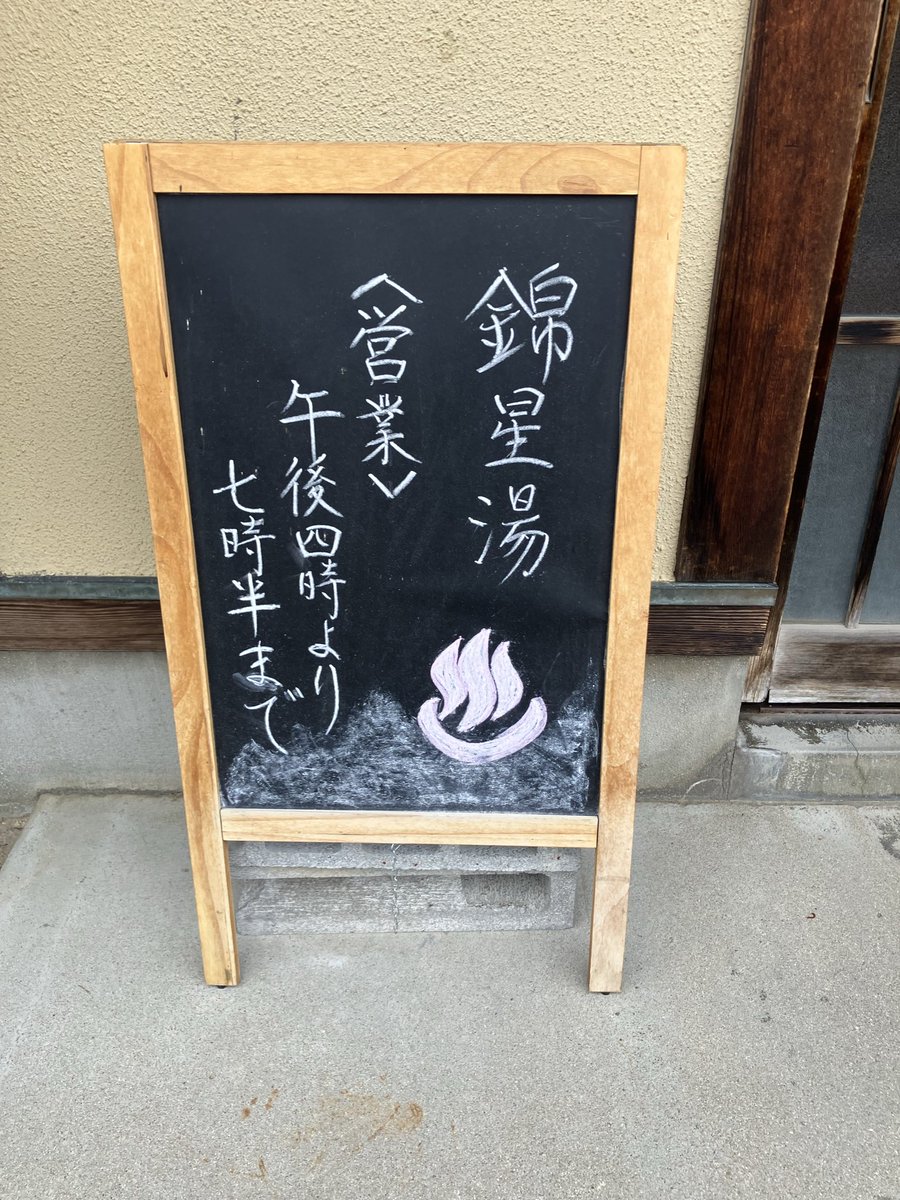 錦星湯
〈営業〉
午後四時より
七時半まで